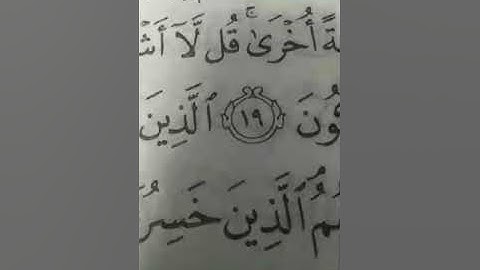 ةً أُخْرَىٰ ۚ قُل لَّآ أَشْ
ُونَ ١٩ ٱلَّذِينَ
هُمُ ٱلَّذِينَ خَسِرُ